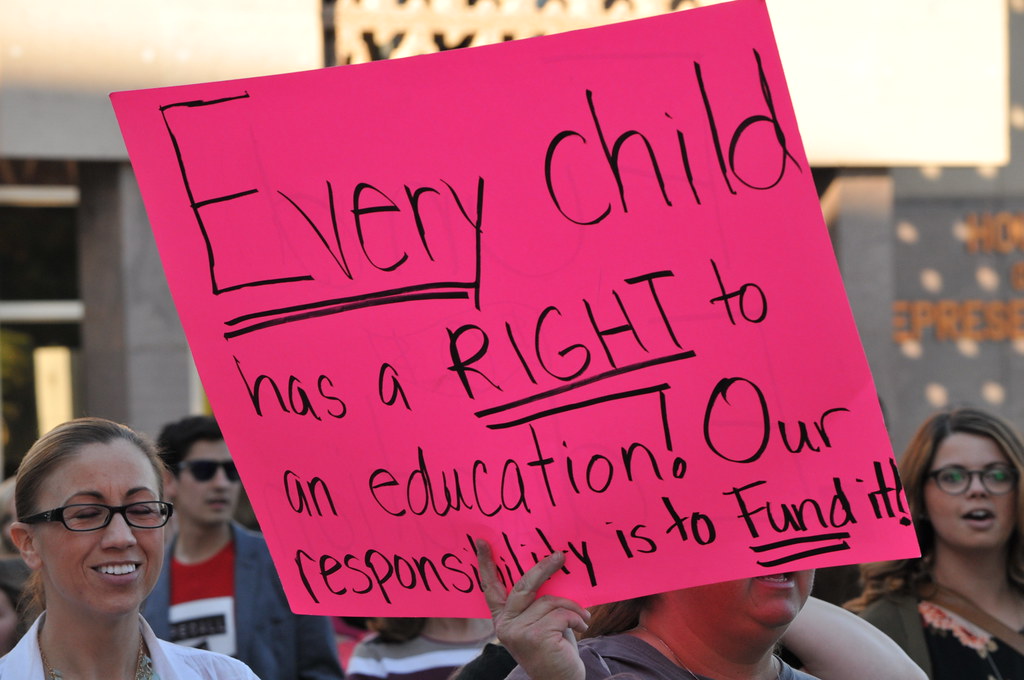 Every child
has a RIGHT to
an education! Our
responsibility is to Fund it!!